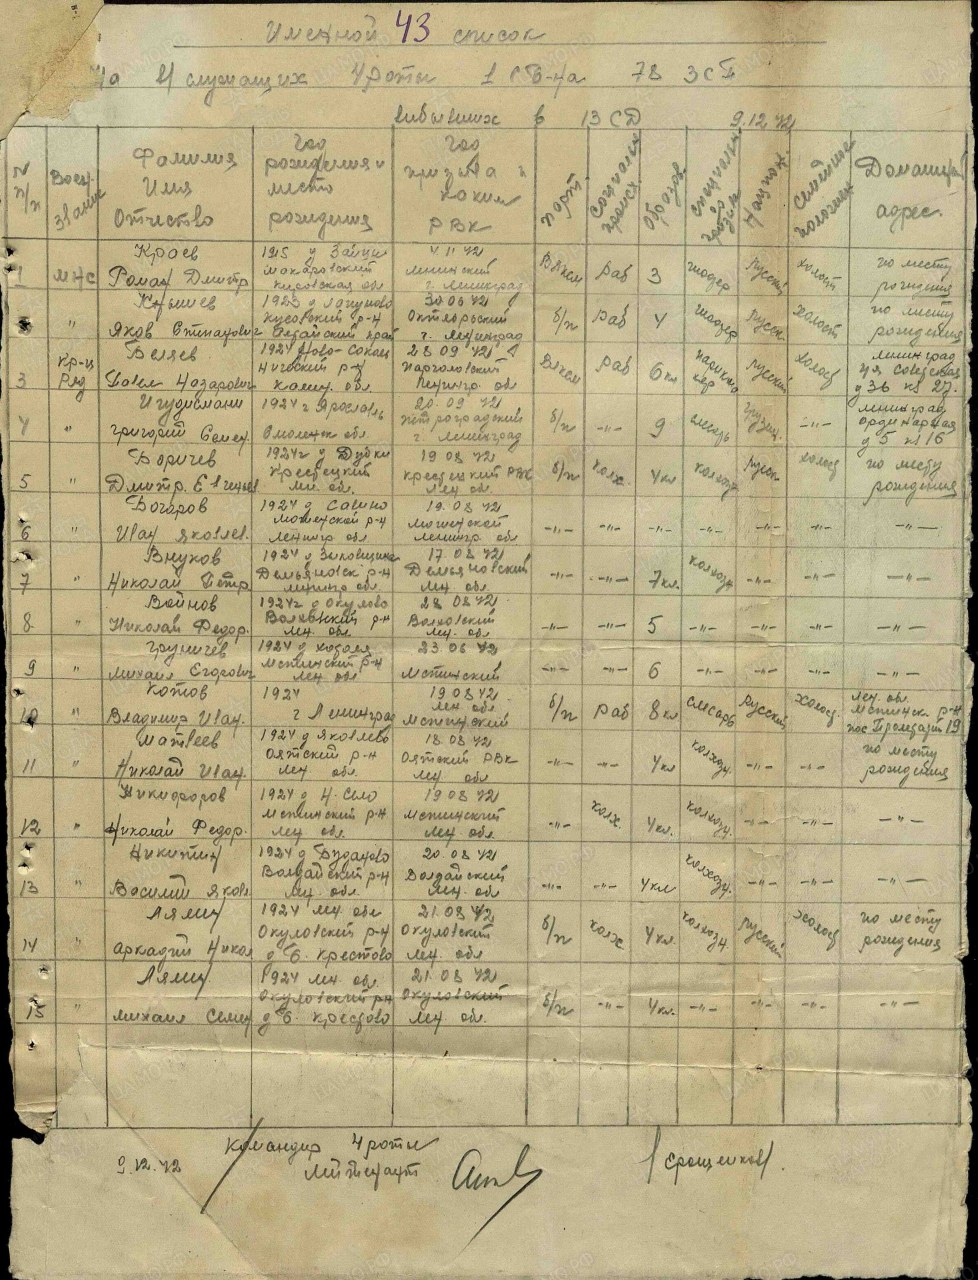 Именной 43 список
на в/служащих 4 роты 1 СБ-на 78 ЗСП
выбывших в 13 СД 9.12.42
N п/п
Воен. звание
Фамилия Имя Отчество
Год рождения и место рождения
Год призыва и каким РВК
парт.
социальн. происх.
образов.
национ.
семейное положен.
Домашний адрес.
1 мнс Краев
Роман Дмитр
1915 д Зайцы
Макаровский
Кировская обл
4 11 42
Ленинский
г. Ленинград
Влксм раб 3 русский холост
по месту рождения
" Яков Степанович
1923
30 06 42
Октябрьский
г. Ленинград
б/п раб 4 русск. холост
по месту рождения
3 Кр-ц Ряд Беляев
Павел Назарович
1924 Ново-
28 09 42
Парголовский
Ленингр. обл
Влксм раб 6 кл русский холост
Ленинград
ул Советская
д 36 кв 27.
4 "
Григорий Семен.
1924 г Ярославль
Смоленск обл
20. 09 42
Петроградский
г. Ленинград
б/п -"- 9 слесарь грузин. -"-
Ленинград
Ординарная
д 5 кв 16
5 " Боричев
Дмитр. Евгеньев
1924г д Дубки
Крестецкий
Лен. обл.
19 08 42
Крестецкий РВК
Лен обл.
б/п колх. 4 кл колхозн русск. холост
по месту рождения
6 " Богаров
Иван Яковлев.
1924 д Савино
Мошенской р-н
Ленингр. обл
19. 08 42
Мошенской
Ленингр. обл
-"- -"- -"- -"- -"- -"- -"-
7 " Внуков
Николай Петр.
1924 д
Демьяновск р-н
Ленингр обл.
17 08 42
Демьяновский
Лен обл.
-"- -"- 7 кл. колхозн -"- -"- -"-
8 " Войнов
Николай Федор.
1924г д Окулово
Волховский р-н
Лен. обл.
28 08 42
Волховский
Лен. обл.
-"- -"- 5 -"- -"- -"- -"-
9 " Груничев
Михаил Егорович
1924 д
Мстинский р-н
Лен обл
23 08 42
Мстинский
-"- -"- 6 -"- -"- -"- -"-
10 " Котов
Владимир Иван.
1924
г Ленинград
19 08 42
Лен обл
Мстинский
б/п раб 8 кл слесарь русский холост
Лен. обл.
Мстинск. р-н
пос Пролетарий 19
11 " Матвеев
Николай Иван.
1924 д Яковлево
Оятский р-н
Лен обл.
18 08 42
Оятский РВК
Лен обл
-"- -"- 4 кл колхозн. -"- -"-
по месту рождения
12 " Никифоров
Николай Федор.
1924 д Н. Село
Мстинский р-н
Лен обл.
19 08 42
Мстинский
Лен обл.
-"- колх. 4 кл. колхозн. -"- -"- -"-
13 " Никитин
Василий Яковл
1924 д
Валдайский р-н
Лен. обл.
20 08 42
Валдайский
Лен. обл
-"- -"- 4 кл колхозн. -"- -"- -"-
14 " Лямин
Аркадий Никол
1924 Лен. обл
Окуловский р-н
д Б. Крестово
21. 08 42
Окуловский
Лен. обл
б/п колх 4 кл. колхозн русский холост
по месту рождения
15 " Лямин
Михаил Семен
1924 Лен. обл.
Окуловский р-н
д Б. Крестово
21 08 42
Окуловский
Лен обл.
б/п -"- 4 кл. -"- -"- -"- -"-
Командир 4 роты
9.12.42 лейтенант /Ерошенков/.